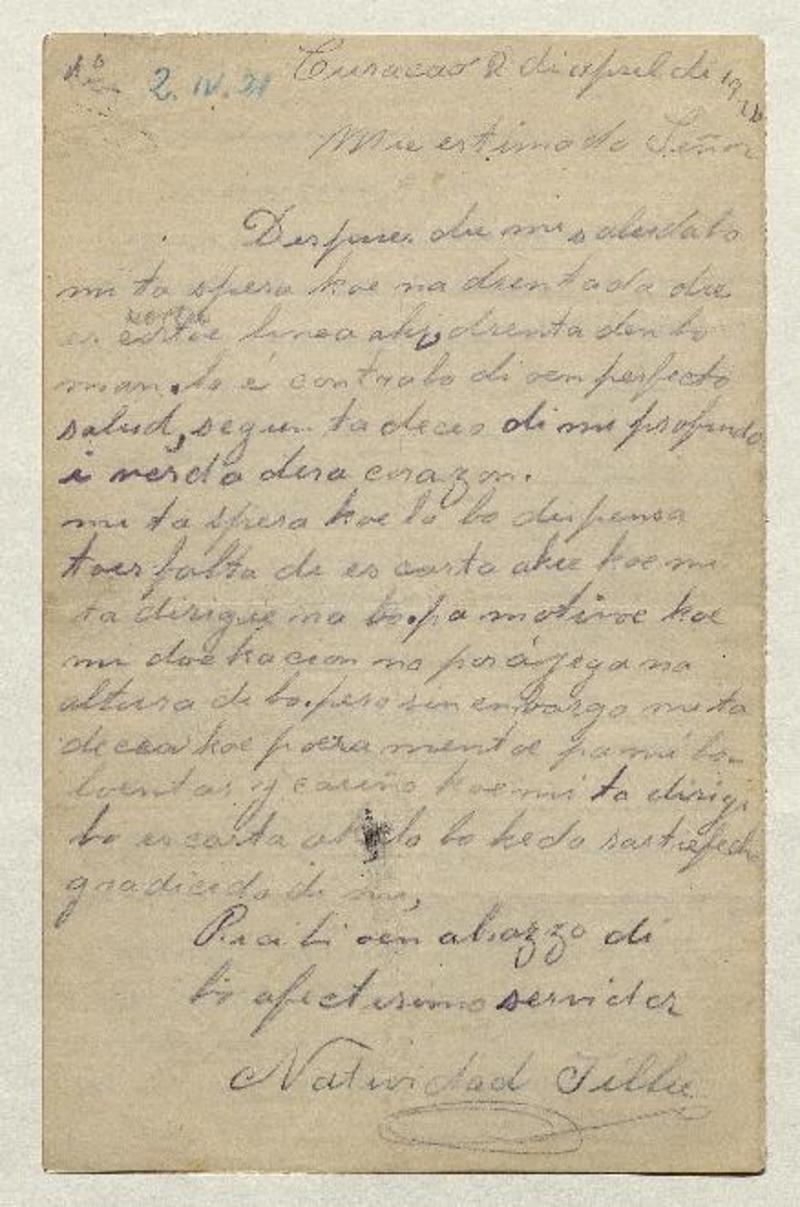 2. IV. 21
Curacao 2 di april di 19
Mu estimado Señor
Despues du mi saludabo
mi ta spera koe na drentada die
es cortoe linea aki, drenta den bo
man, lo é contrabo di oen perfecto
salud, segun ta deceo di mi profundo
i verdadera corazon.
mi ta spera koe lo bo dispensa
toer falta di es carta akie koe mi
ta dirigie na bo. pa motivoe koe
mi doekacion no por a jega na
altura di bo. pero sin embargo mi ta
decea koe poera mentoe pa mi bo
boentar y cariño koe mi ta dirigi
bo es carta lo bo keda sastiefecho
gradicido di mi,
Recibi oen abrazzo di
bo afectisimo servidor
Natividad Sillie